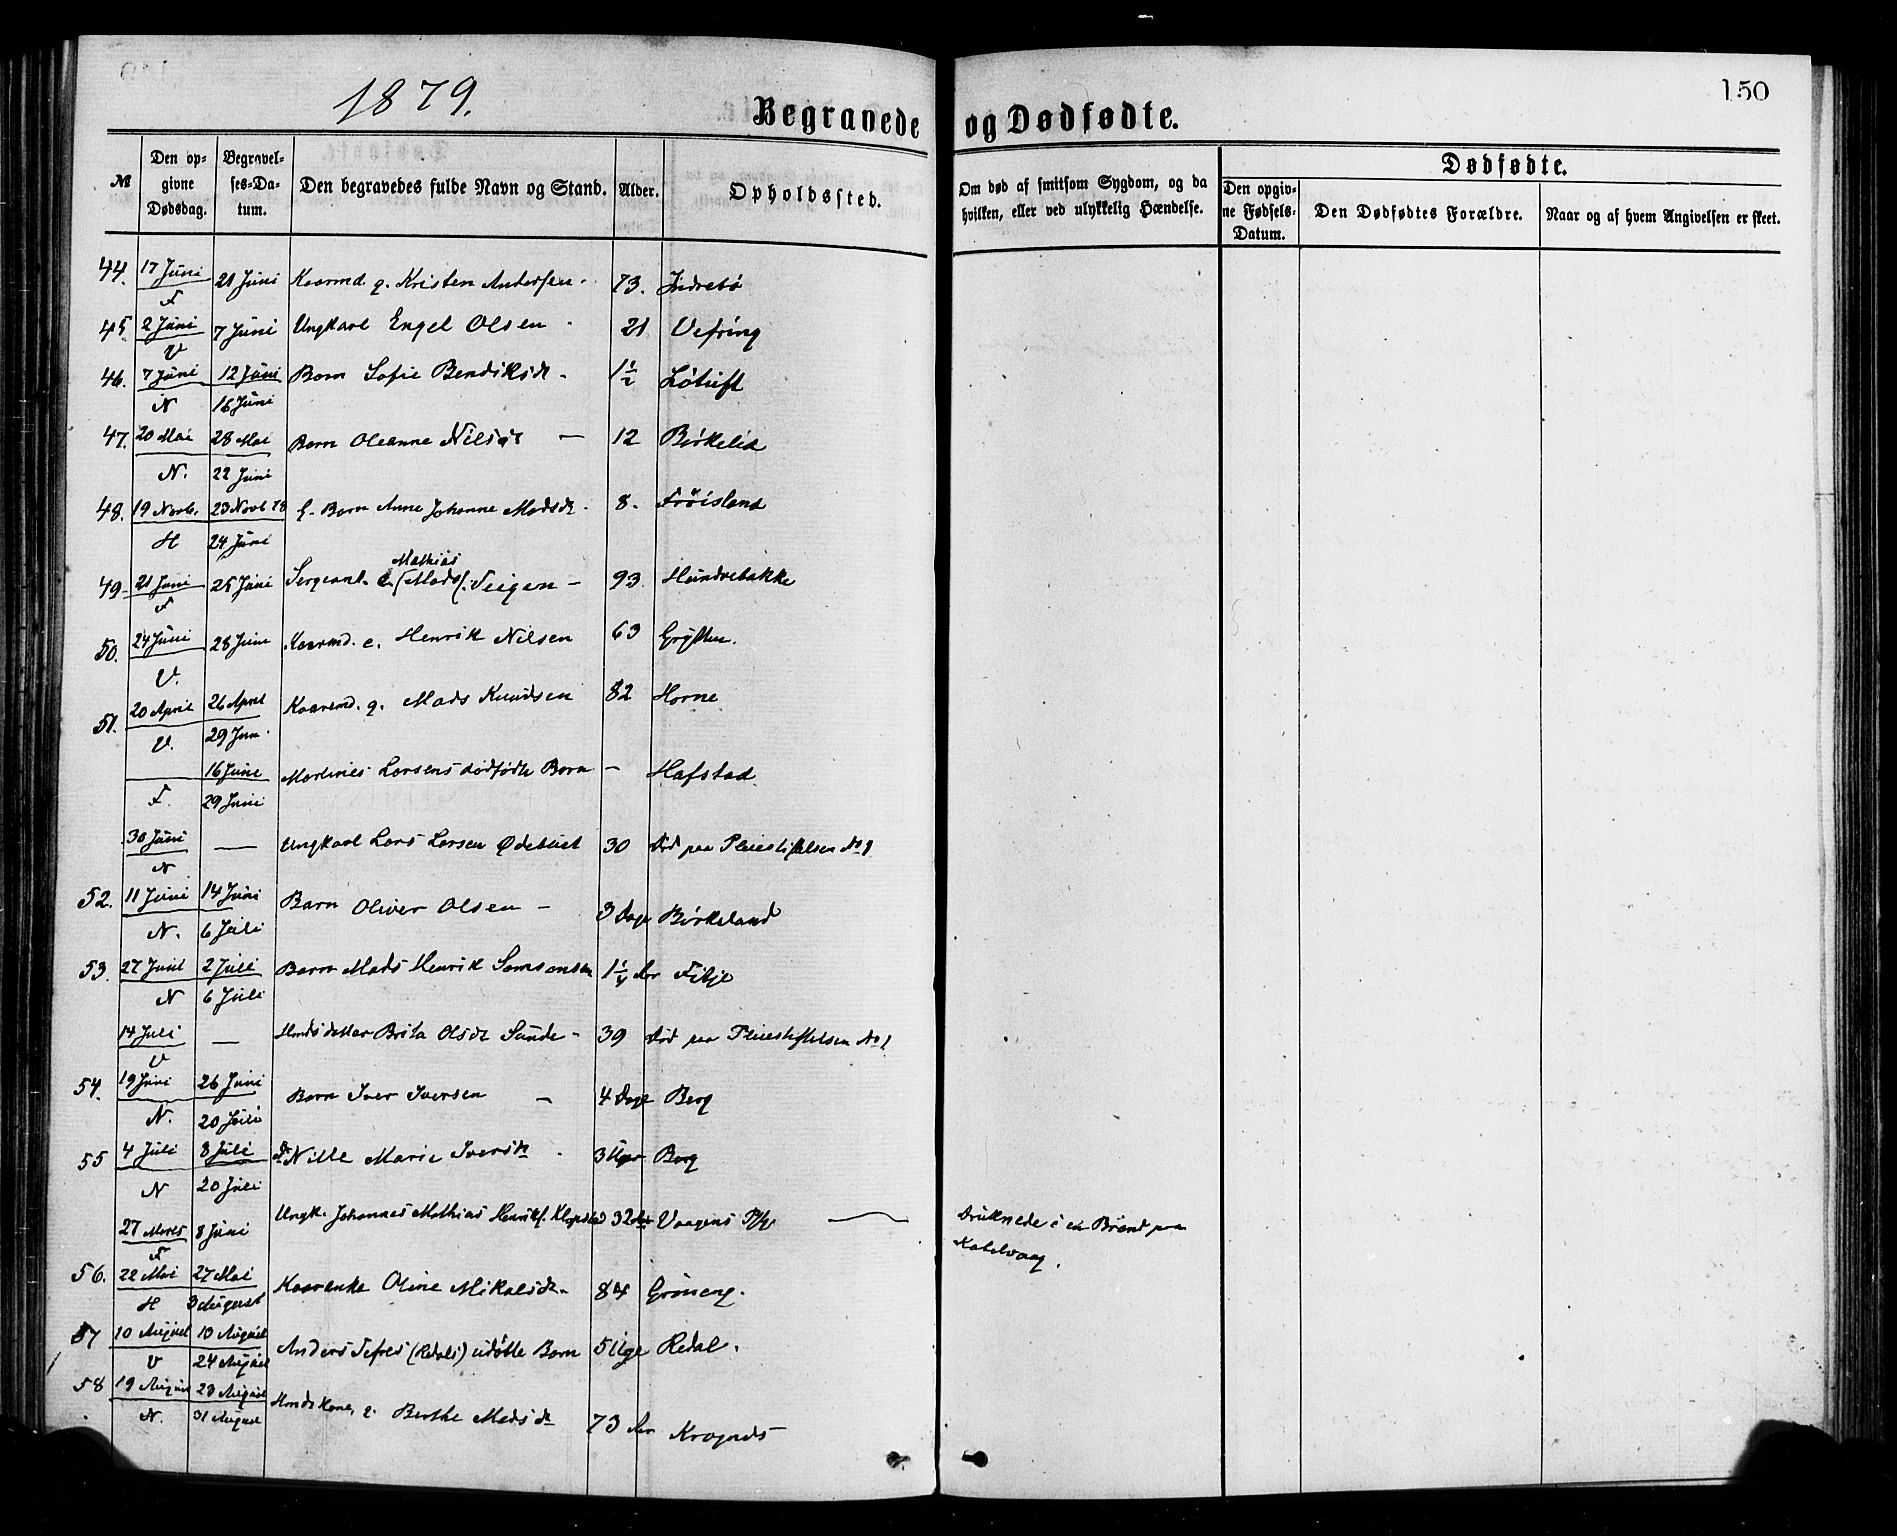 150
1879.
Begravede og Dødfødte.
№
Den opgivne Dødsdag.
Begravelses-Datum.
Den begravedes fulde Navn og Stand.
Alder.
Opholdssted.
Om død af smitsom Sygdom, og da hvilken, eller ved ulykkelig Hændelse.
Dødfødte.
Den opgivne Fødsels-Datum.
Den Dødfødtes Forældre.
Naar og af hvem Angivelsen er skeet.
44. 17 Juni F 21 Juni Kaarmd. g. Kristen Andersen - 73. Indrebö
45 2 Juni V 7 Juni Ungkarl Engel Olsen - 21 Vefring
46. 7 Juni N 12 Juni 16 Juni Barn Sofie Bendiksdr - 1½ Lötuft
47. 20 Mai N. 28 Mai 22 Juni Barn Oleanne Nilsdr - 12 Birkelid
48. 19 Novb. H 23 Novb 78 24 Juni G. Barn Anne Johanne Madsdr - 8. Fröisland
49- 21 Juni F 25 Juni Sergeant e. Mathias (Mads). Teigen - 93 Hundvebakke
50. 24 Juni V. 28 Juni Kaarmd. e. Henrik Nilsen 63
51. 20 April V. 26 April 29 Jun. Kaarmd. g. Mads Knudsen 82 Horne
F. 16 Juni 29 Juni Martines Larsens dødfødte Barn - Hafstad
30 Juni N — Ungkarl Lars Larsen Ødebust 30 Död paa Pleiestiftelsen No 1
52. 11 Juni N. 14 Juni 6 Juli Barn Oliver Olsen - 3 Dage Birkeland
53. 27 Juni N 2 Juli 6 Juli Barn Mads Henrik Samsonsen 1¼ Aar Fitje
14 Juli V — Datter Brita Olsdr Sunde - 39 Död paa Pleiestiftelsen No 1
54. 19 Juni N. 26 Juni 20 Juli Barn Iver Iversen - 4 Dage Berg
55 4 Juli N 8 Juli 20 Juli Nille Marie Iversdr - 3 Uger Berg
27 Marts F 8 Juni Ungk. Johannes Mathias Henriks. Klopstad 32 Aar Vaagens Pgj — Druknede i en Brönd paa Kabelvaag.
56. 22 Mai H 27 Mai 3 August Kaarenke Oline Mikalsdr - 84 Gröneng.
57 10 August V 13 August 24 August Anders Tefres (Redals) udöbte Barn 5 Uge Redal.
58 19 August N. 23 August 31 August Kone, g. Berthe Madsdr 73 Aar